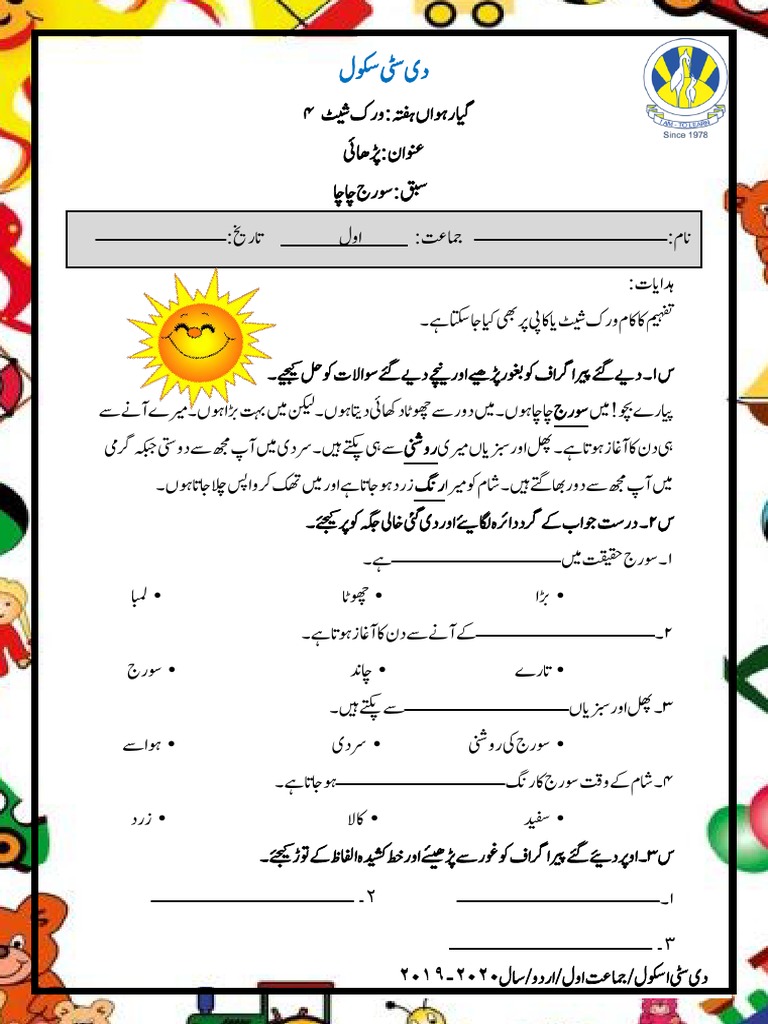 دی سٹی سکول
گیارہواں ہفتہ: ورک شیٹ ۴
عنوان: پڑھائی
سبق: سورج چاچا
I AM - TO LEARN
Since 1978
نام: جماعت: اول تاریخ:
ہدایات:
تفہیم کا کام ورک شیٹ یا کاپی پر بھی کیا جا سکتا ہے۔
س۱۔ دیے گئے پیرا گراف کو بغور پڑھیے اور نیچے دیے گئے سوالات کو حل کیجیے۔
پیارے بچو! میں سورج چاچا ہوں۔ میں دور سے چھوٹا دکھائی دیتا ہوں۔ لیکن میں بہت بڑا ہوں۔ میرے آنے سے
ہی دن کا آغاز ہوتا ہے۔ پھل اور سبزیاں میری روشنی سے ہی پکتے ہیں۔ سردی میں آپ مجھ سے دوستی جبکہ گرمی
میں آپ مجھ سے دور بھاگتے ہیں۔ شام کو میرا رنگ زرد ہو جاتا ہے اور میں تھک کر واپس چلا جاتا ہوں۔
س۲۔ درست جواب کے گرد دائرہ لگایئے اور دی گئی خالی جگہ کو پر کیجئے۔
۱۔ سورج حقیقت میں ــــــــــــــــ ہے۔
• بڑا • چھوٹا • لمبا
۲۔ ــــــــــــــــ کے آنے سے دن کا آغاز ہوتا ہے۔
• تارے • چاند • سورج
۳۔ پھل اور سبزیاں ــــــــــــــــ سے پکتے ہیں۔
• سورج کی روشنی • سردی • ہوا سے
۴۔ شام کے وقت سورج کا رنگ ــــــــــــــــ ہو جاتا ہے۔
• سفید • کالا • زرد
س۳۔ اوپر دیئے گئے پیرا گراف کو غور سے پڑھیئے اور خط کشیدہ الفاظ کے توڑ کیجئے۔
۱۔ ــــــــــــــــ ۲۔ ــــــــــــــــ
۳۔ ــــــــــــــــ
دی سٹی اسکول/ جماعت اول/ اردو/ سال ۲۰۲۰-۲۰۱۹